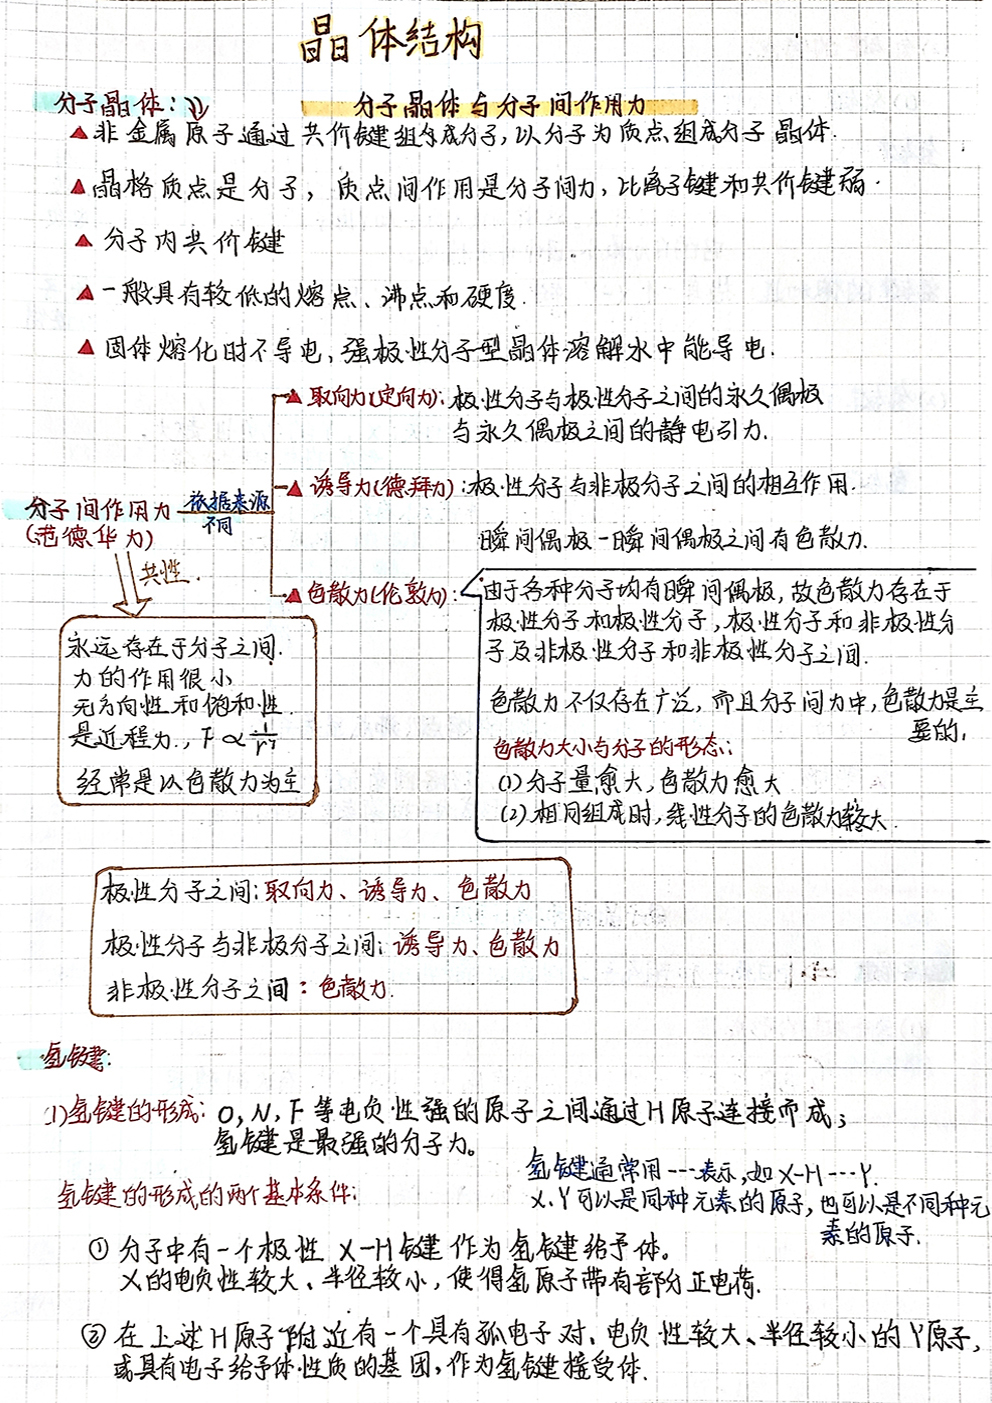 晶体结构
分子晶体:
分子晶体与分子间作用力
▲非金属原子通过共价键组成分子,以分子为质点组成分子晶体.
▲晶格质点是分子,质点间作用是分子间力,比离子键和共价键弱.
▲分子内共价键
▲一般具有较低的熔点、沸点和硬度.
▲固体熔化时不导电,强极性分子型晶体溶解水中能导电.
▲取向力(定向力):极性分子与极性分子之间的永久偶极
与永久偶极之间的静电引力.
▲诱导力(德拜力):极性分子与非极分子之间的相互作用.
分子间作用力
(范德华力)
依据来源
不同
瞬间偶极-瞬间偶极之间有色散力.
共性.
▲色散力(伦敦力):
由于各种分子均有瞬间偶极,故色散力存在于
极性分子和极性分子,极性分子和非极性分
子及非极性分子和非极性分子之间.
色散力不仅存在广泛,而且分子间力中,色散力是主
要的,
色散力大小与分子的形态:
(1)分子量愈大,色散力愈大
(2)相同组成时,线性分子的色散力较大.
永远存在于分子之间.
力的作用很小
无方向性和饱和性.
是近程力., F∝1/r⁷
经常是以色散力为主
极性分子之间:取向力、诱导力、色散力
极性分子与非极分子之间:诱导力、色散力
非极性分子之间:色散力.
氢键:
(1)氢键的形成:O,N,F等电负性强的原子之间通过H原子连接而成;
氢键是最强的分子力。
氢键通常用---表示,如X-H---Y.
X.Y可以是同种元素的原子,也可以是不同种元
素的原子.
氢键的形成的两个基本条件:
①分子中有一个极性X-H键作为氢键给予体。
X的电负性较大、半径较小,使得氢原子带有部分正电荷.
②在上述H原子附近有一个具有孤电子对、电负性较大、半径较小的Y原子,
或具有电子给予体性质的基团,作为氢键接受体.